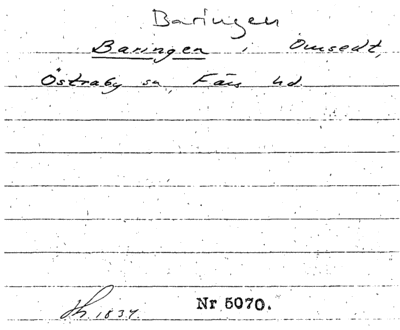 Baringen
Baringen i Onsedt,
Östraby sn, Färs hd.
1837. Nr 5070.